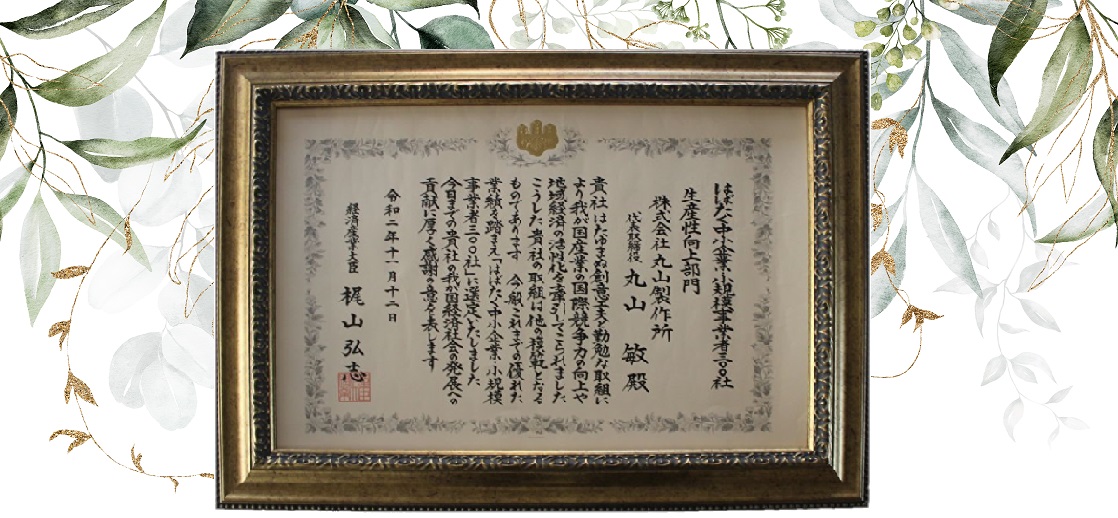 はばたく中小企業・小規模事業者三〇〇社
生産性向上部門
株式会社丸山製作所
代表取締役 丸山 敏 殿
貴社はたゆまぬ創意工夫と勤勉な取組に
より我が国産業の国際競争力の向上や
地域経済の活性化を牽引してこられました
こうした貴社の取組は他の模範となる
ものであります 今般これまでの優れた
業績を踏まえ「はばたく中小企業・小規模
事業者三〇〇社」に選定いたしました
今日までの貴社の我が国経済社会の発展への
貢献に厚く感謝の意を表します
令和二年十一月十二日
経済産業大臣 梶山弘志